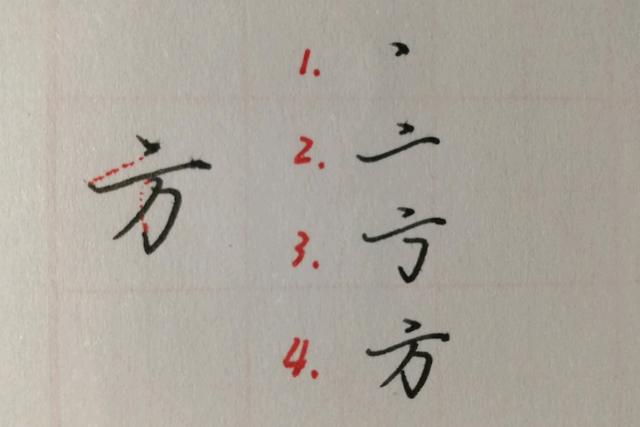 方
1. 丶
2. 亠
3. 亠㇆
4. 方